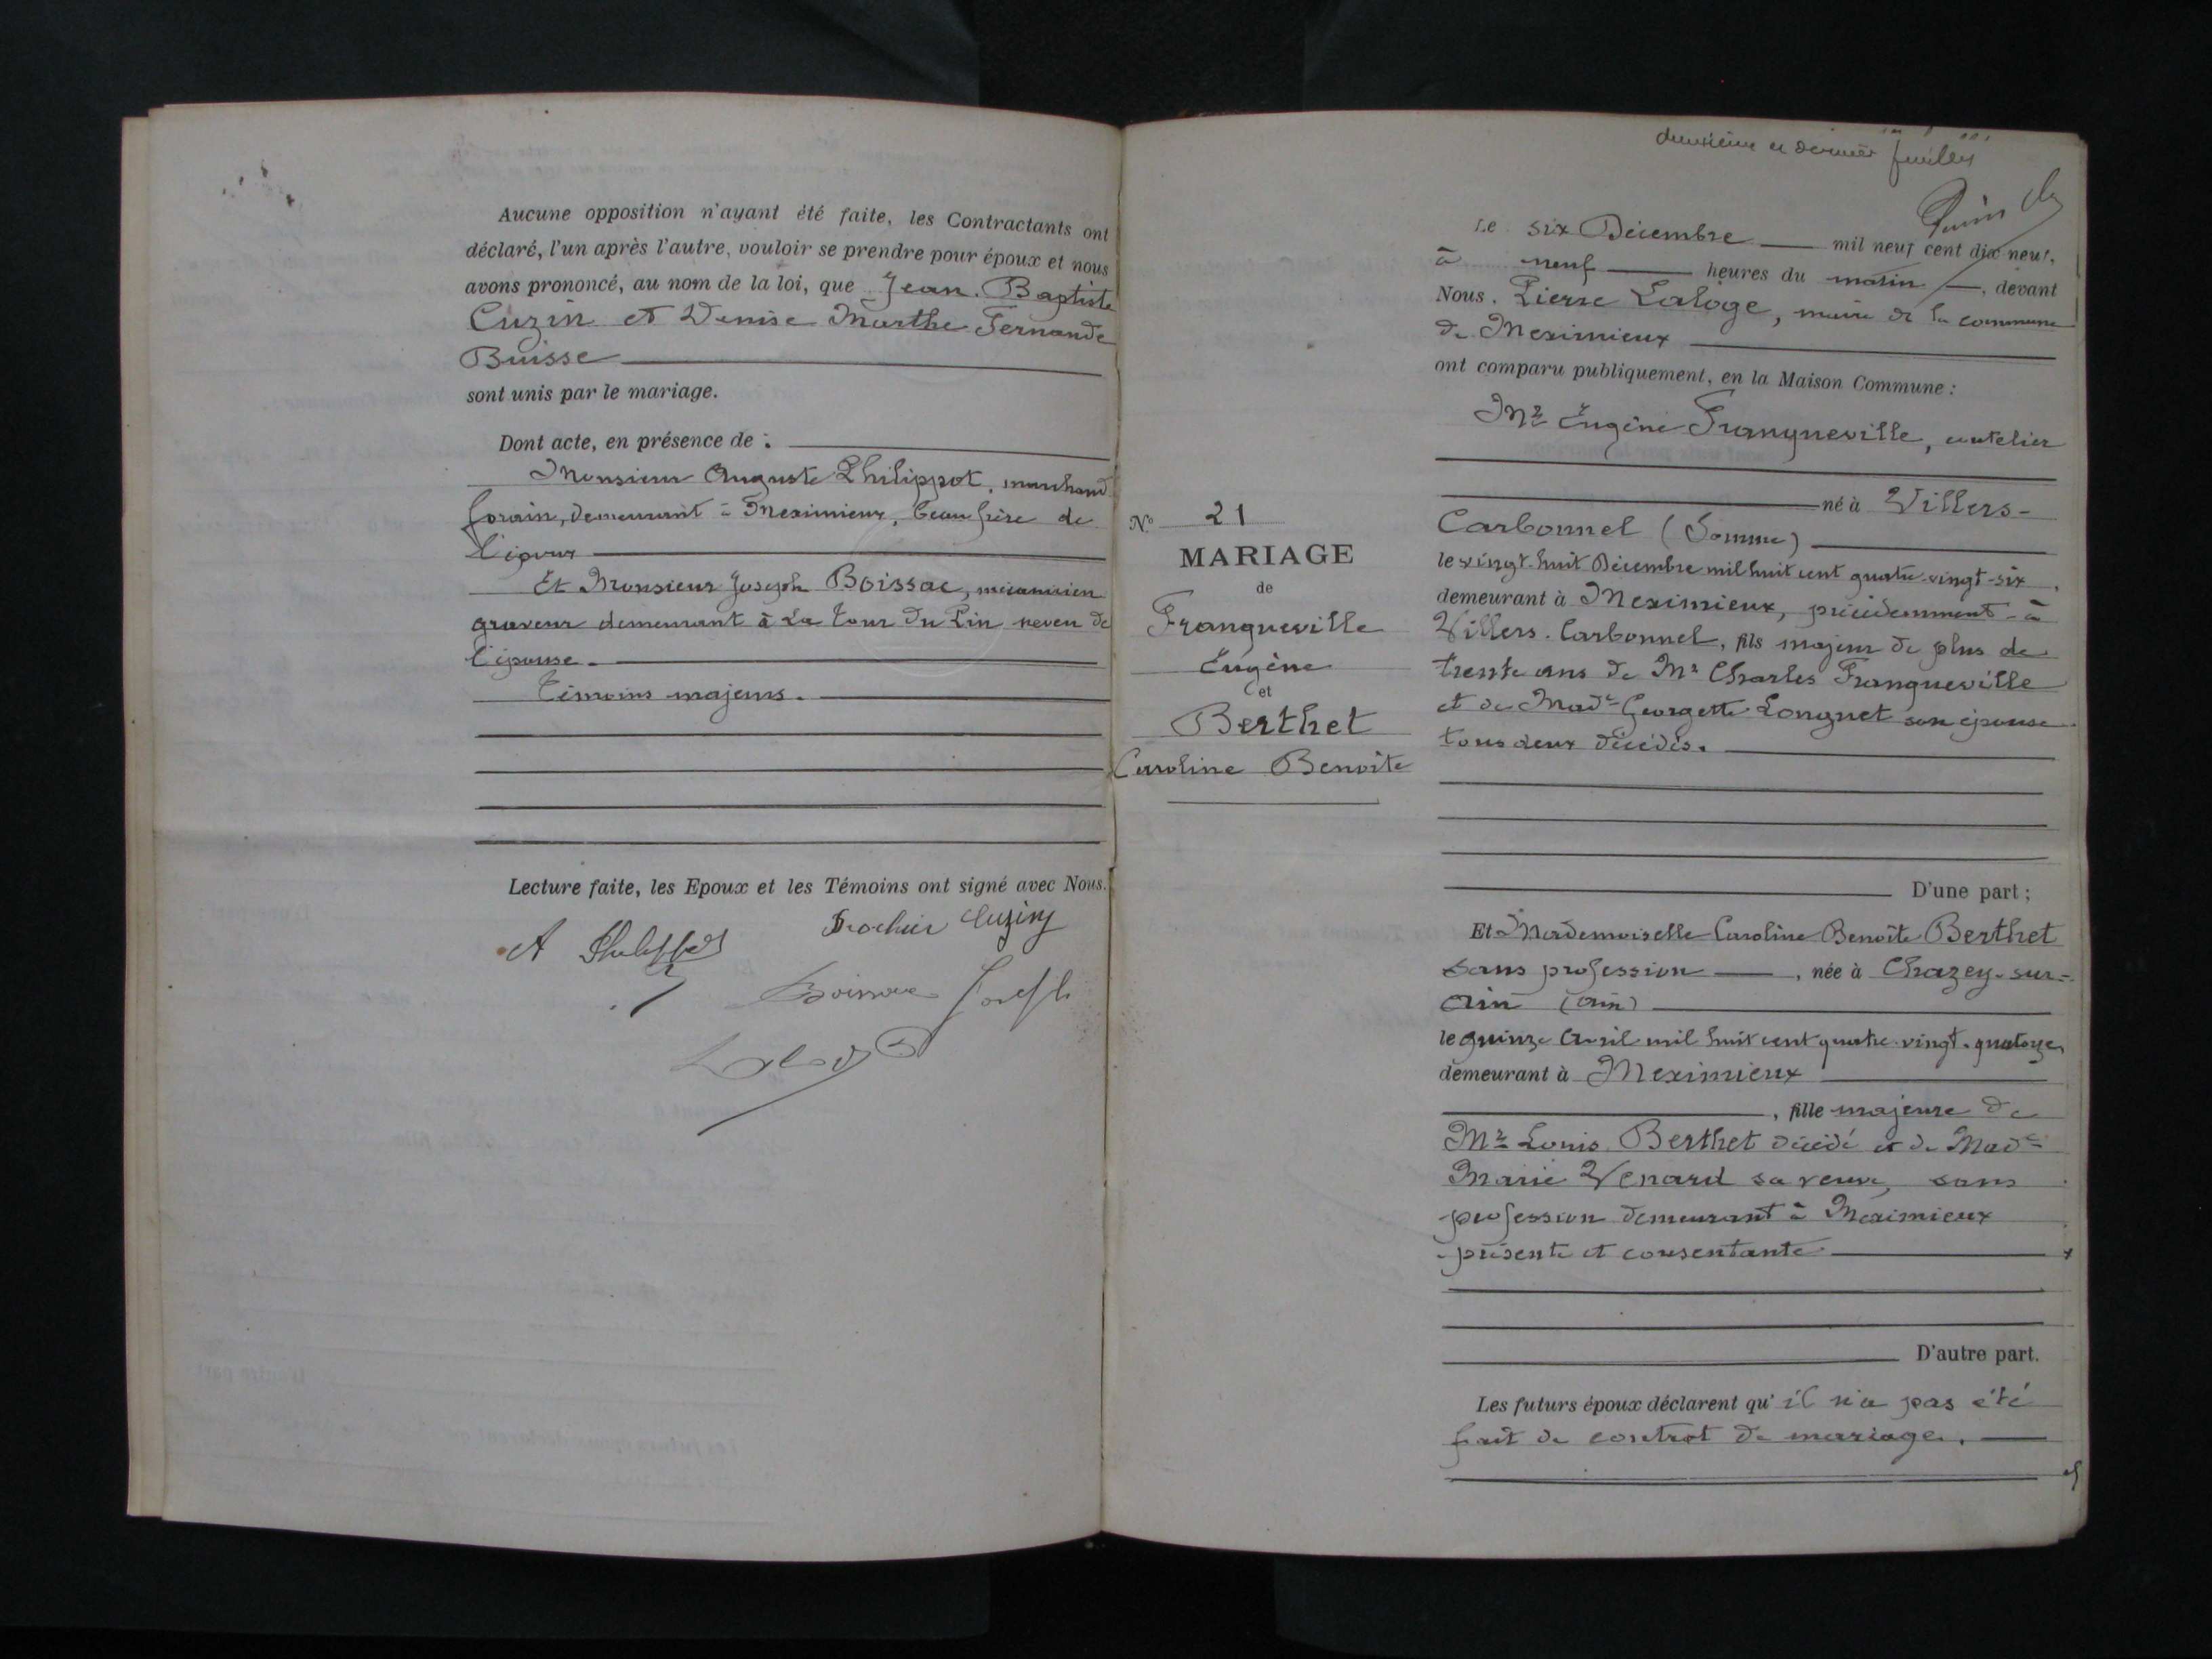 Aucune opposition n'ayant été faite, les Contractants ont
déclaré, l'un après l'autre, vouloir se prendre pour époux et nous
avons prononcé, au nom de la loi, que Jean-Baptiste
Cuzin et Denise Marthe Fernande
Buisse
sont unis par le mariage.
Dont acte, en présence de :
Monsieur Auguste Philippot, marchand
forain, demeurant à Meximieux, beau frère de
l'époux
Et Monsieur Joseph Boissac, mécanicien
graveur demeurant à La Tour du Pin neveu de
l'épouse.
Témoins majeurs.
Lecture faite, les Epoux et les Témoins ont signé avec Nous.
Cuzin
A Philippot
Boissac Joseph
deuxième et dernier feuillet
No 21
MARIAGE
de
Franqueville
Eugène
et
Berthet
Caroline Benoîte
Le six Décembre mil neuf cent dix neuf,
à neuf heures du matin, devant
Nous, Pierre Laloge, maire de la commune
de Meximieux
ont comparu publiquement, en la Maison Commune :
Mr Eugène Franqueville, coutelier
né à Villers-
Carbonnel (Somme)
le vingt-huit Décembre mil huit cent quatre-vingt-six,
demeurant à Meximieux, précédemment à
Villers-Carbonnel, fils majeur de plus de
trente ans de Mr Charles Franqueville
et de Made Georgette Longuet son épouse
tous deux décédés.
D'une part ;
Et Mademoiselle Caroline Benoîte Berthet
sans profession, née à Chazey-sur-
Ain (Ain)
le quinze Avril mil huit cent quatre-vingt-quatorze
demeurant à Meximieux
, fille majeure de
Mr Louis Berthet décédé et de Made
Marie Venard sa veuve, sans
profession demeurant à Meximieux
présente et consentante
D'autre part.
Les futurs époux déclarent qu'il n'a pas été
fait de contrat de mariage.